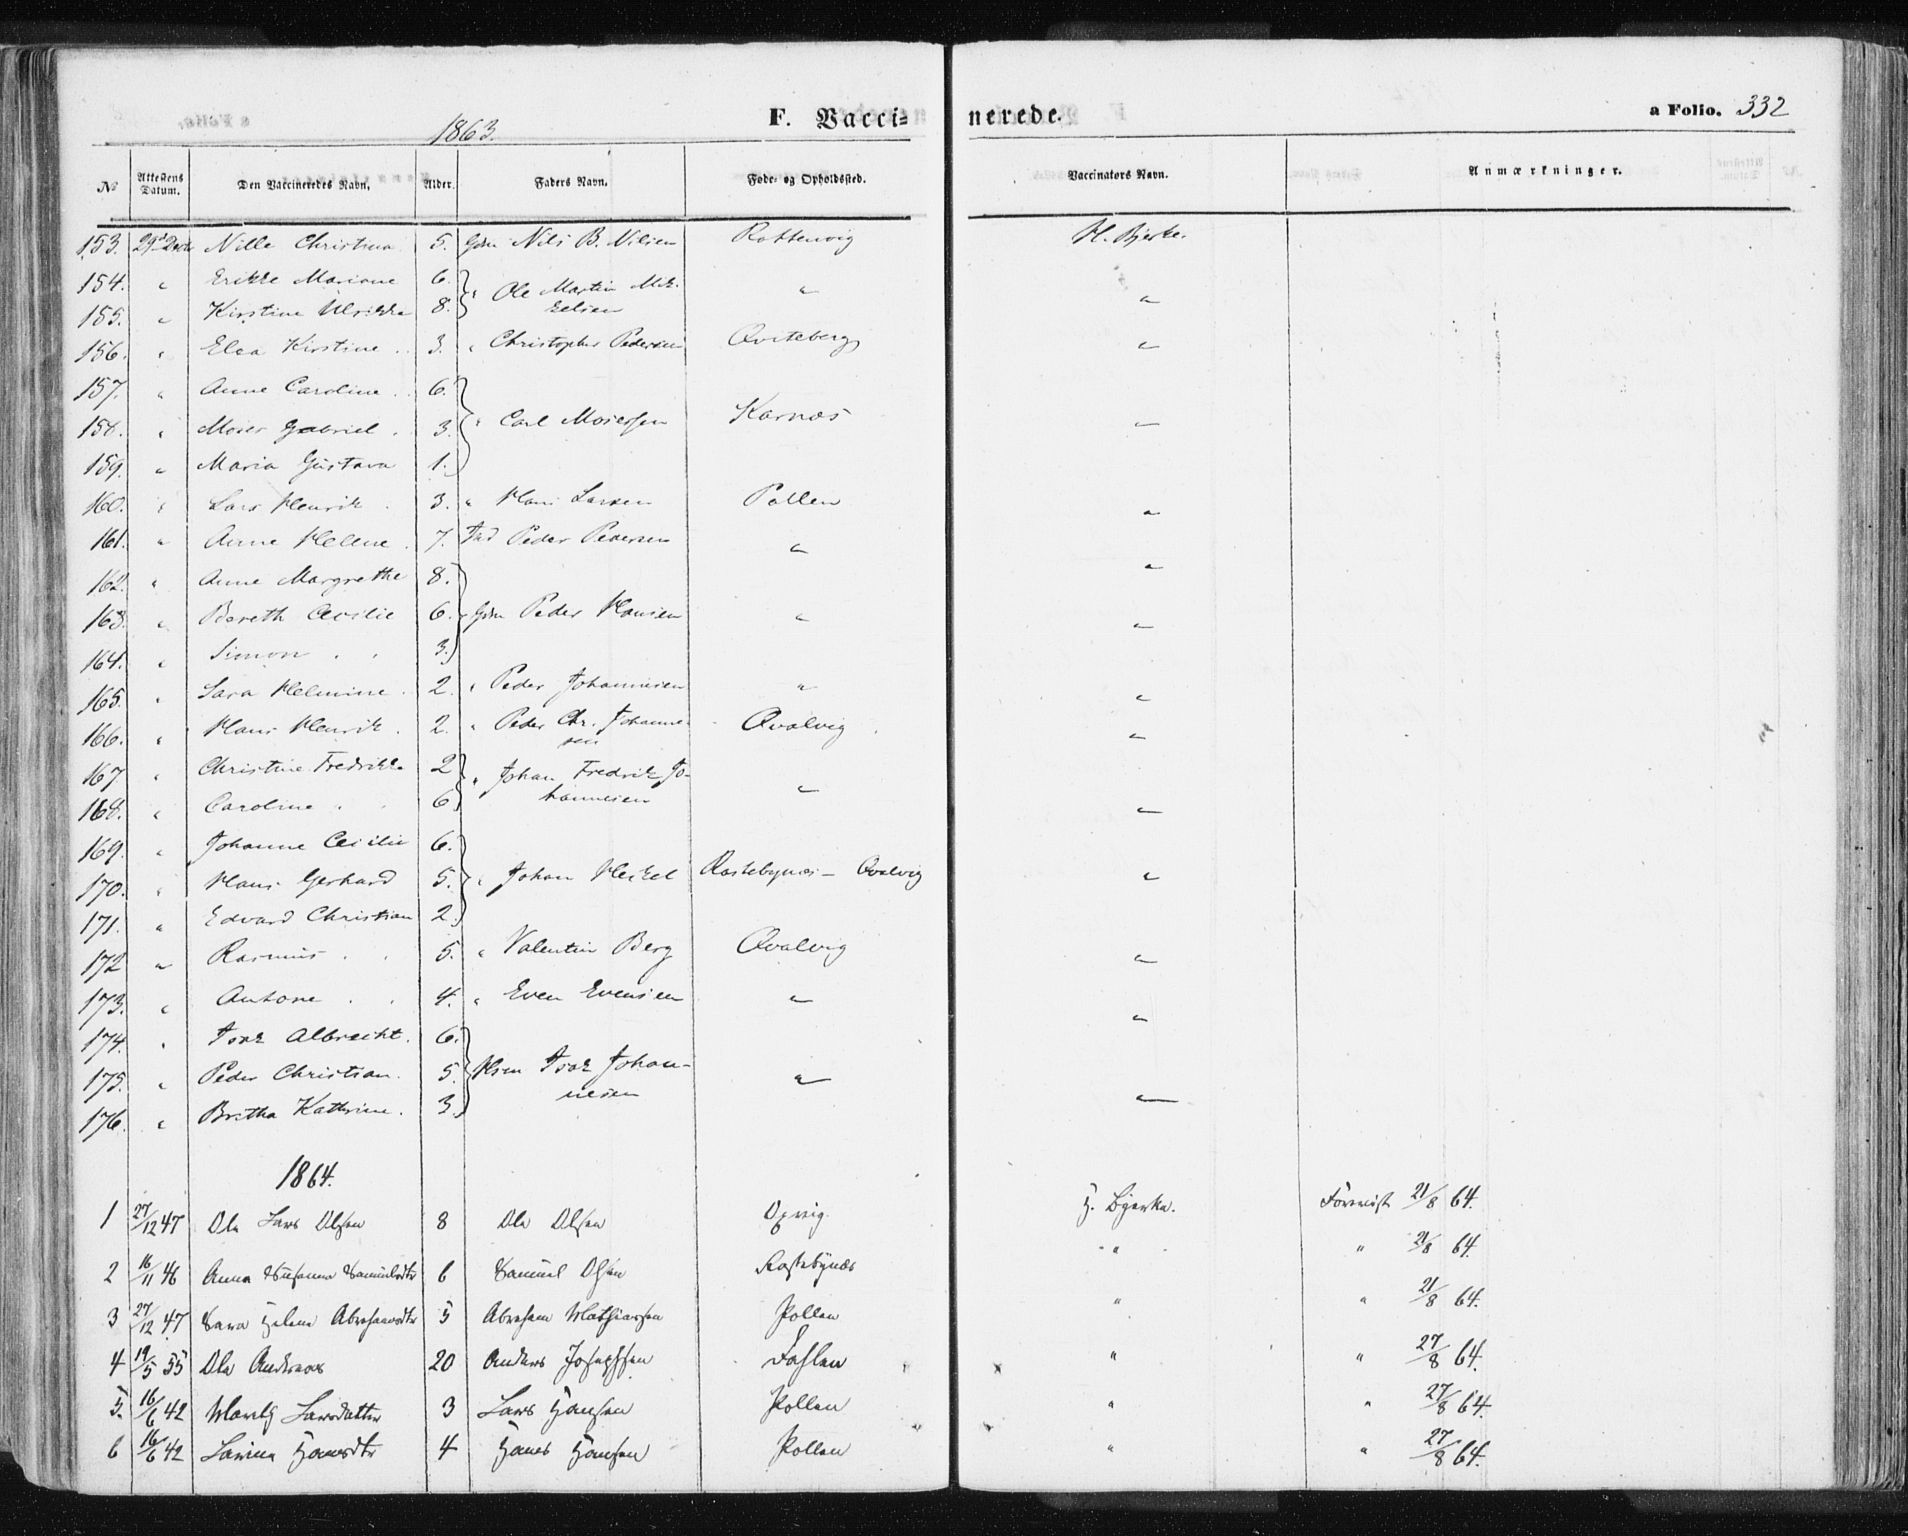 1863. F. Vaccinerede. a Folio. 332
No Attestens Datum. Den Vaccineredes Navn. Alder. Faders Navn. Føde- og Opholdssted. Vaccinators Navn. Anmærkninger.
153. 29d Decbr Nille Christina 5. Gdm Nils B. Nilsen Rottenvig H. Bjerke.
154. " Erikke Mariane 6. " Ole Martin Mik- " "
155. " Kirstine Ulrikke 8. kelsen
156. " Elea Kirstine 3. " Christopher Pedersen Qviteberg "
157. " Anne Caroline 6.
158. " Moses Gabriel 3. " Carl Mosessen Karnæs "
159. " Maria Gustava 1.
160. " Lars Henrik 3. " Hans Larsen Pollen "
161. " Anne Helene 7. Ind Peder Pedersen " "
162. " Anne Margrethe 8.
163. " Bereth Cecilie 6. Gdm Peder Hansen " "
164. " Simon 3.
165. " Sara Helmine 2. " Peder Johannesen " "
166. " Hans Henrik 2. " Peder Chr. Johanne- Qvalvig "
sen
167 " Christine Fredrikke 2 " Johan Fredrik Jo-
168. " Caroline 6 hannesen " "
169. " Johanne Cecilie 6.
170. " Hans Gerhard 5. " Johan Heikel Rastebynæs - Qvalvig "
171. " Edvard Christian 2.
172 " Rasmus 5. " Valentin Berg Qvalvig "
173. " Antone 4. " Even Evensen " "
174. " Isak Albrecht. 6.
175. " Peder Christian. 5. Hsm Isak Johan- " "
176. " Britha Kathrine. 3. nesen
1864.
1 27/12 47 Ole Lars Olsen 8 Ole Olsen Oxvig. H. Bjerke. Forevist 21/8 64.
2 16/11 46 Anna Susanna Samuelsdtr 6 Samuel Olsen Rastebynæs " " 21/8 64.
3 27/12 47 Sara Helene Abrahamsdtr 5 Abraham Mathiassen Pollen " " 21/8 64.
4 19/5 55 Ole Andreas 20 Anders Josephsen " " 27/8 64.
5. 16/6 42 Mareth Larsdatter 3 Lars Hansen Pollen " " 27/8 64.
6 16/6 42 Larina Hansdtr 4 Hans Hansen Pollen " " 27/8 64.